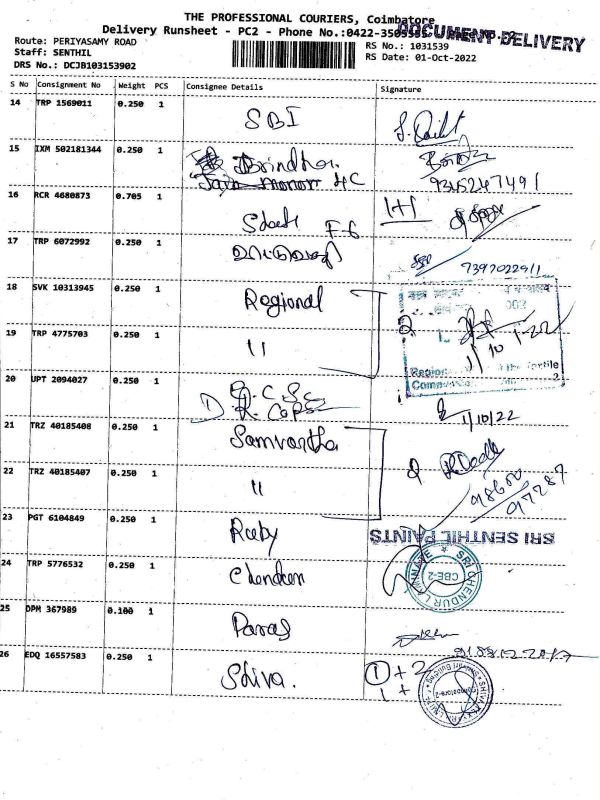 THE PROFESSIONAL COURIERS, Coimbatore
Delivery Runsheet - PC2 - Phone No.:0422-3505555
DOCUMENT DELIVERY
Route: PERIYASAMY ROAD
RS No.: 1031539
Staff: SENTHIL
RS Date: 01-Oct-2022
DRS No.: DCJB103153902
S No Consignment No Weight PCS Consignee Details Signature
14 TRP 1569011 0.250 1 SBI
15 IXM 502181344 0.250 1 Brindha
9345247491
16 RCR 4680873 0.705 1 State F-6 1+1
17 TRP 6072992 0.250 1
7397022911
18 SVK 10313945 0.250 1 Regional
19 TRP 4775703 0.250 1 11
1/10
Textile
20 UPT 2094027 0.250 1
1/10/22
21 TRZ 40185408 0.250 1 Samvartha
22 TRZ 40185407 0.250 1 11
98600
97287
23 PGT 6104849 0.250 1 Ruby
SRI SENTHIL PAINTS
24 TRP 5776532 0.250 1 Chendur
CBE-2
25 DPM 367989 0.100 1 Paras
26 EDQ 16557583 0.250 1 Shiva.
1 + 2
1 +